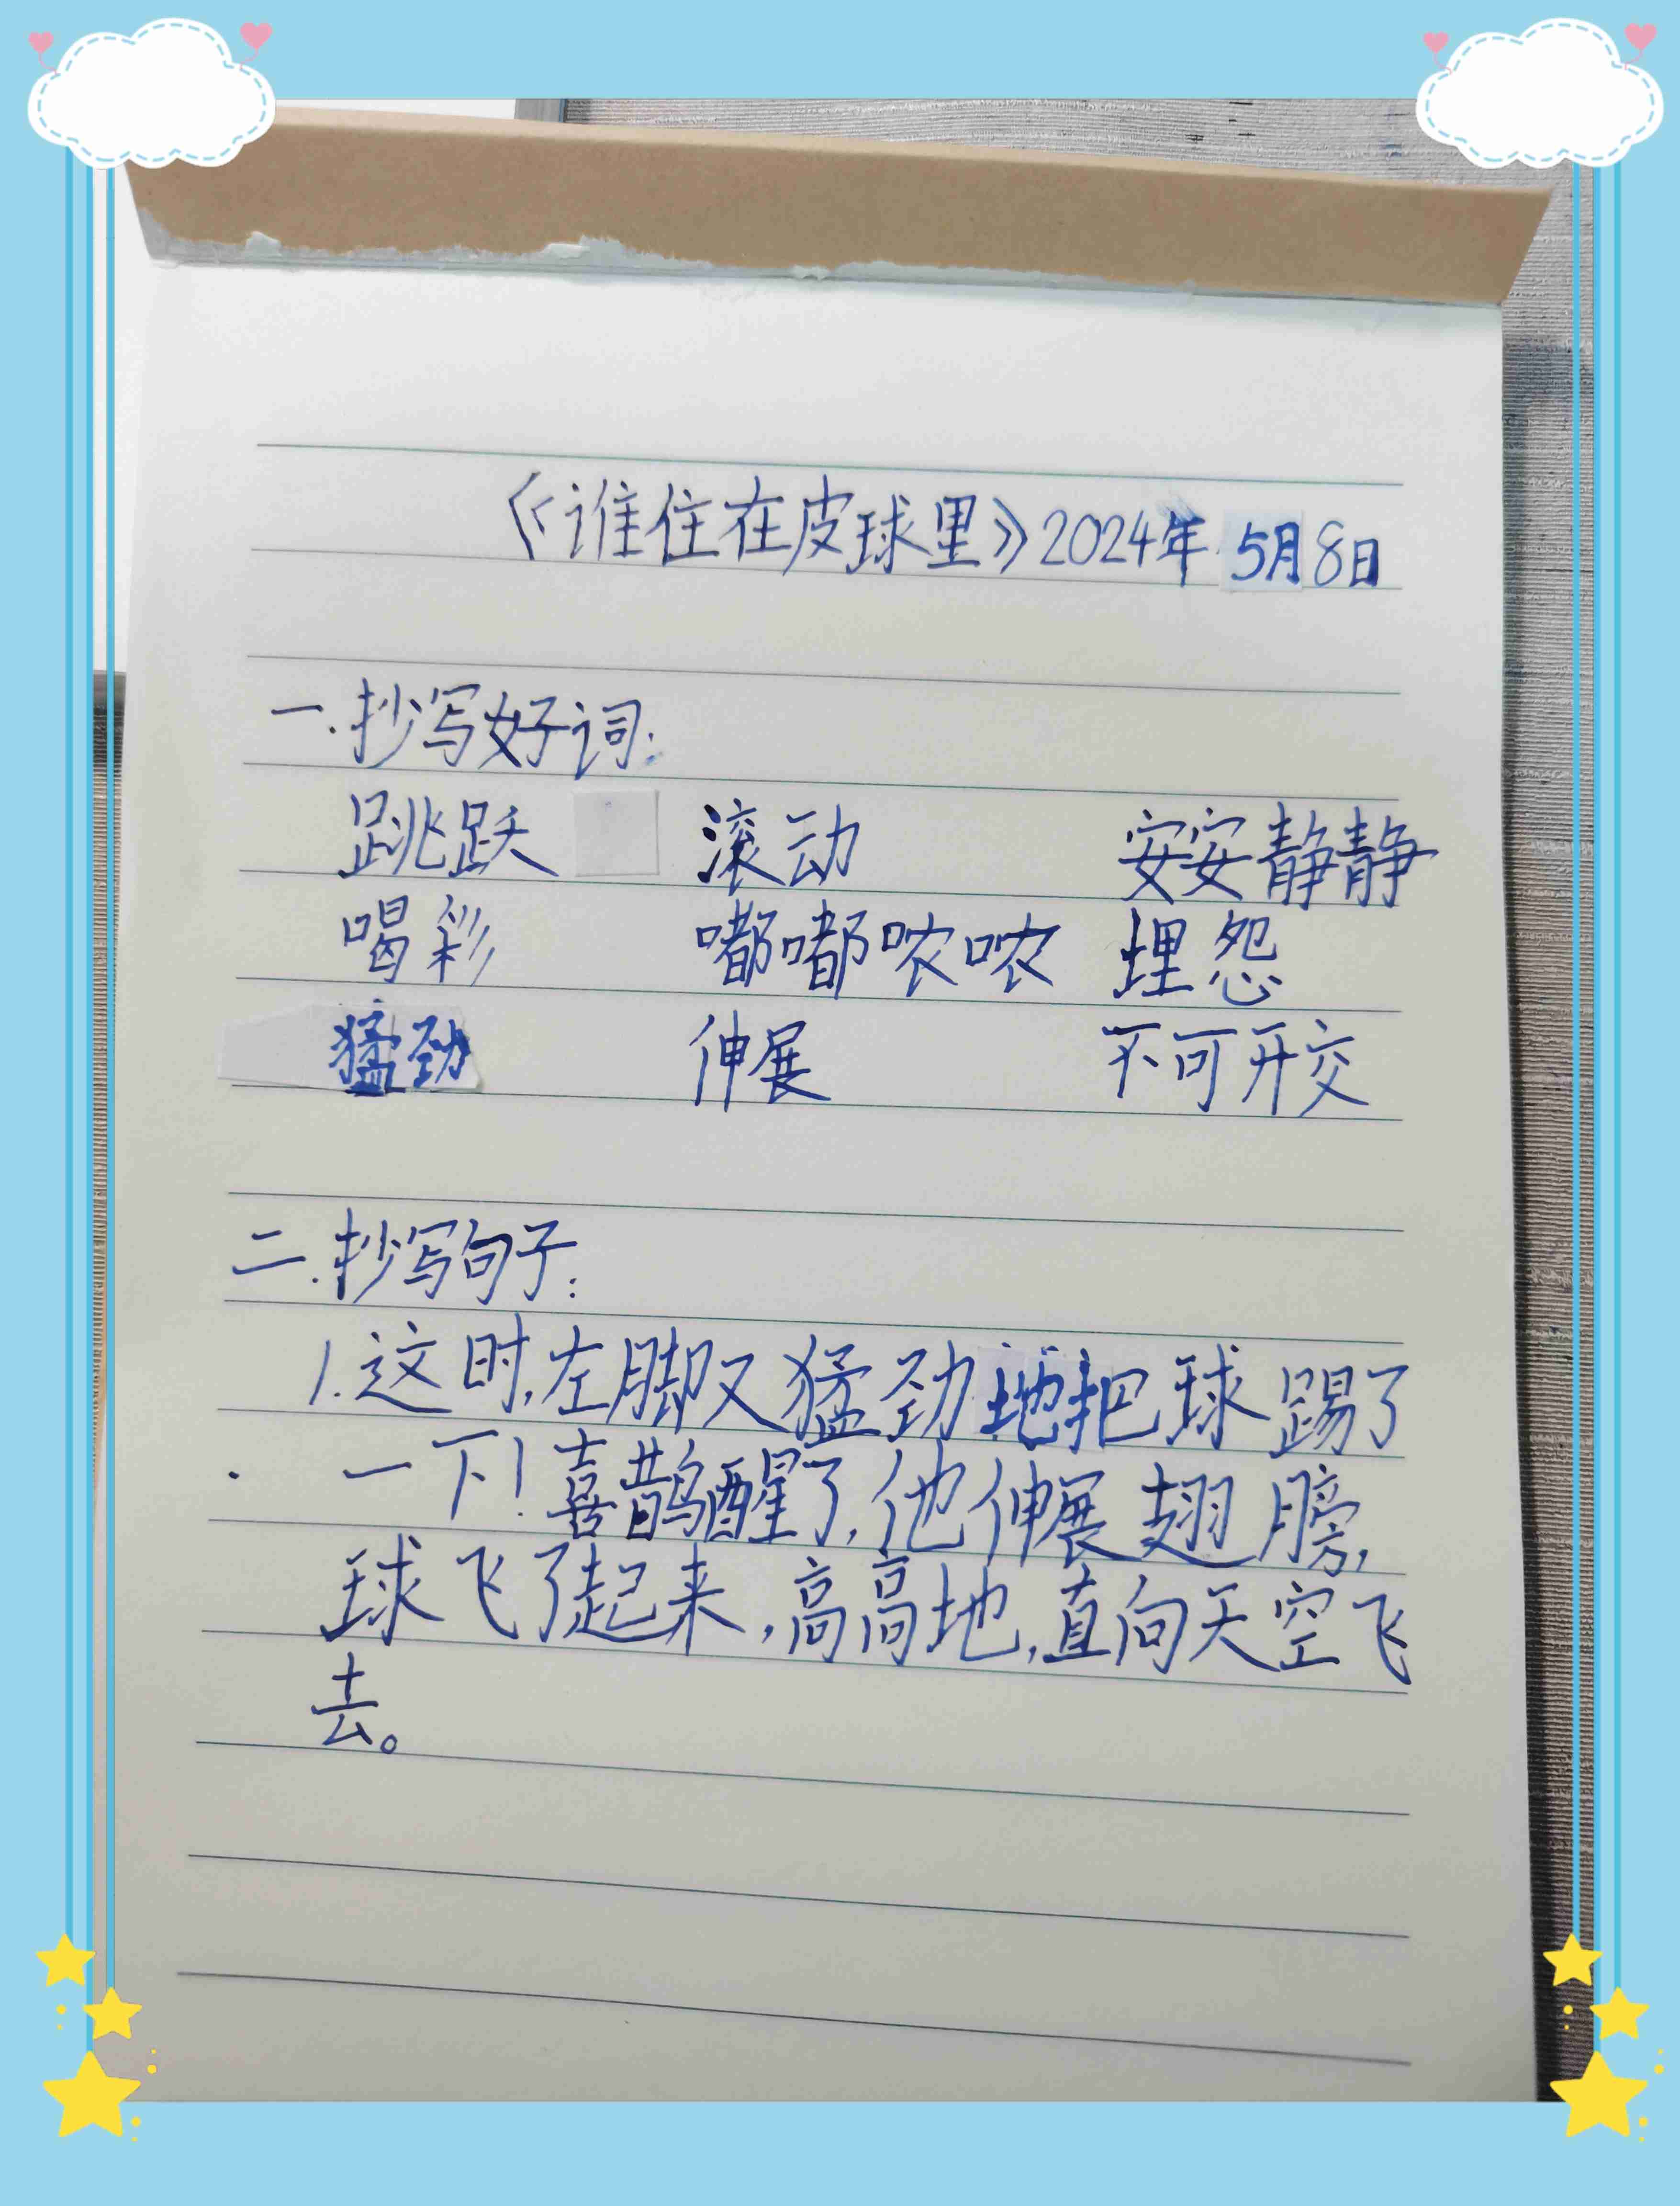 《谁住在皮球里》2024年5月8日
一.抄写好词:
跳跃 滚动 安安静静
喝彩 嘟嘟哝哝 埋怨
猛劲 伸展 不可开交
二.抄写句子:
1.这时,左脚又猛劲地把球踢了
一下!喜鹊醒了,他伸展翅膀,
球飞了起来,高高地,直向天空飞
去。